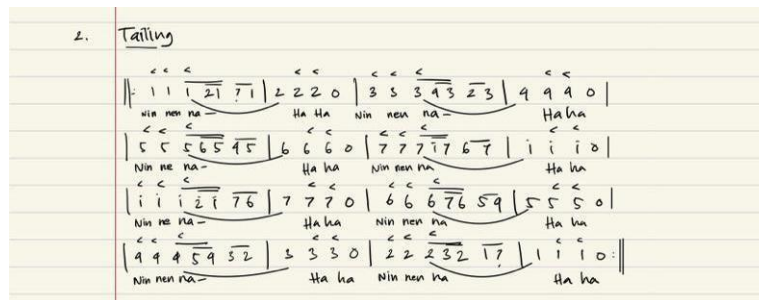 2. Tailing
< < < < < < < < < <
‖: 1 1 1 2̅1̅ 7̣̅1̅ | 2 2 2 0 | 3 3 3 4̅3̅ 2̅3̅ | 4 4 4 0 |
Nin nen na— Ha Ha Nin nen na— Ha ha
< < < < < < < < < <
| 5 5 5 6̅5̅ 4̅5̅ | 6 6 6 0 | 7 7 7 i̅7̅ 6̅7̅ | i i i 0 |
Nin ne na— Ha ha Nin nen na Ha ha
< < < < < < < < < <
| i i i 2̇̅i̅ 7̅6̅ | 7 7 7 0 | 6 6 6 7̅6̅ 5̅4̅ | 5 5 5 0 |
Nin ne na— Ha ha Nin nen na Ha ha
< < < < < < < < < <
| 4 4 4 5̅4̅ 3̅2̅ | 3 3 3 0 | 2 2 2 3̅2̅ 1̅7̣̅ | 1 1 1 0 :‖
Nin nen na— Ha ha Nin nen na Ha ha